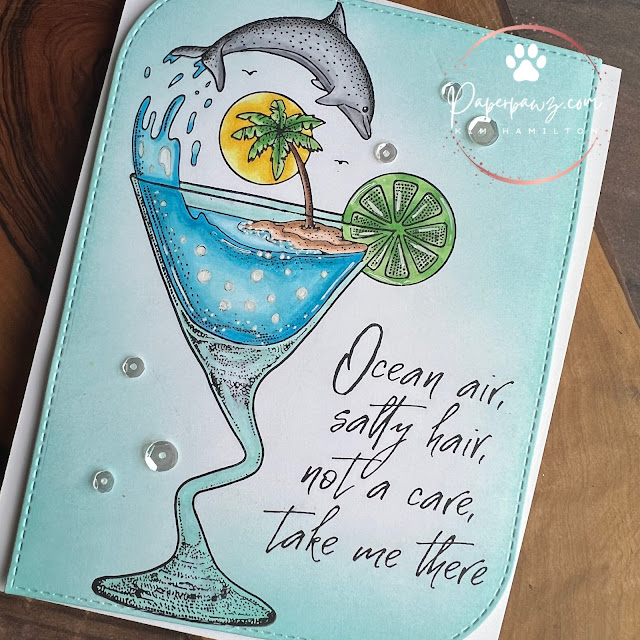 Paperpawz.com
KIM HAMILTON
Ocean air,
salty hair,
not a care,
take me there